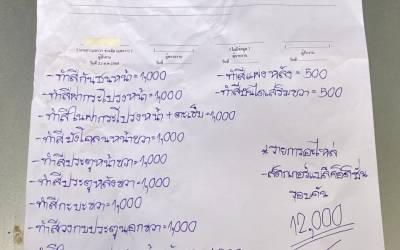 ผู้รับงาน
วันที่ 22 ต.ค 2568
ผู้ตรวจงาน
วันที่
ผู้รับงาน
วันที่
- ทำสีกันชนหน้า = 1,000
- ทำสีแผงหลัง = 500
- ทำสีฝากระโปรงหน้า = 1,000
- ทำสีบันไดเสริมขวา = 500
- ทำสีในฝากระโปรงหน้า + = 1,000
- ทำสีบังโคลนหน้าขวา = 1,000
- ทำสีประตูหน้าขวา = 1,000
* รายการอะไหล่
- ทำสีประตูหลังขวา = 1,000
- สติกเกอร์
- ทำสีกะบะขวา = 1,000
รอบคัน
- ทำสีวงกบประตูนอกขวา = 1,000
12,000